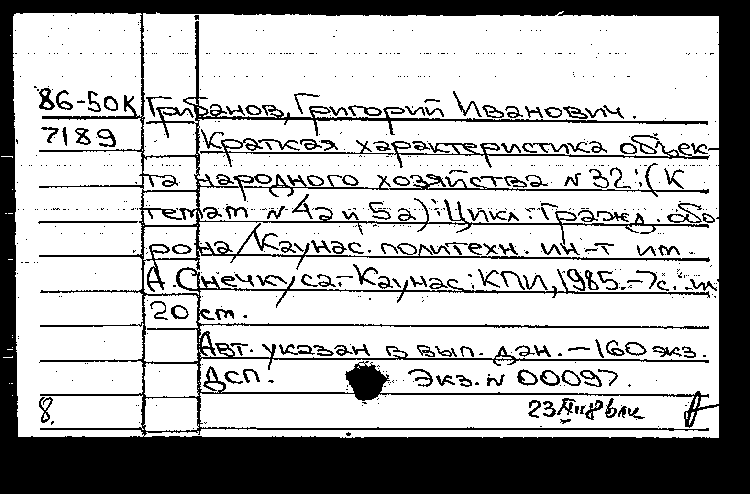 86-50К Грибанов, Григорий Иванович.
7189 Краткая характеристика объек-
та народного хозяйства N 32: (К
темам N 4а и 5а): Цикл: Гражд. обо-
рона / Каунас. политехн. ин-т им.
А. Снечкуса.- Каунас: КПИ, 1985.- 7с.
20 см.
Авт. указан в вып. дан. – 160 экз.
Дсп. Экз. N 00097.
8. 23